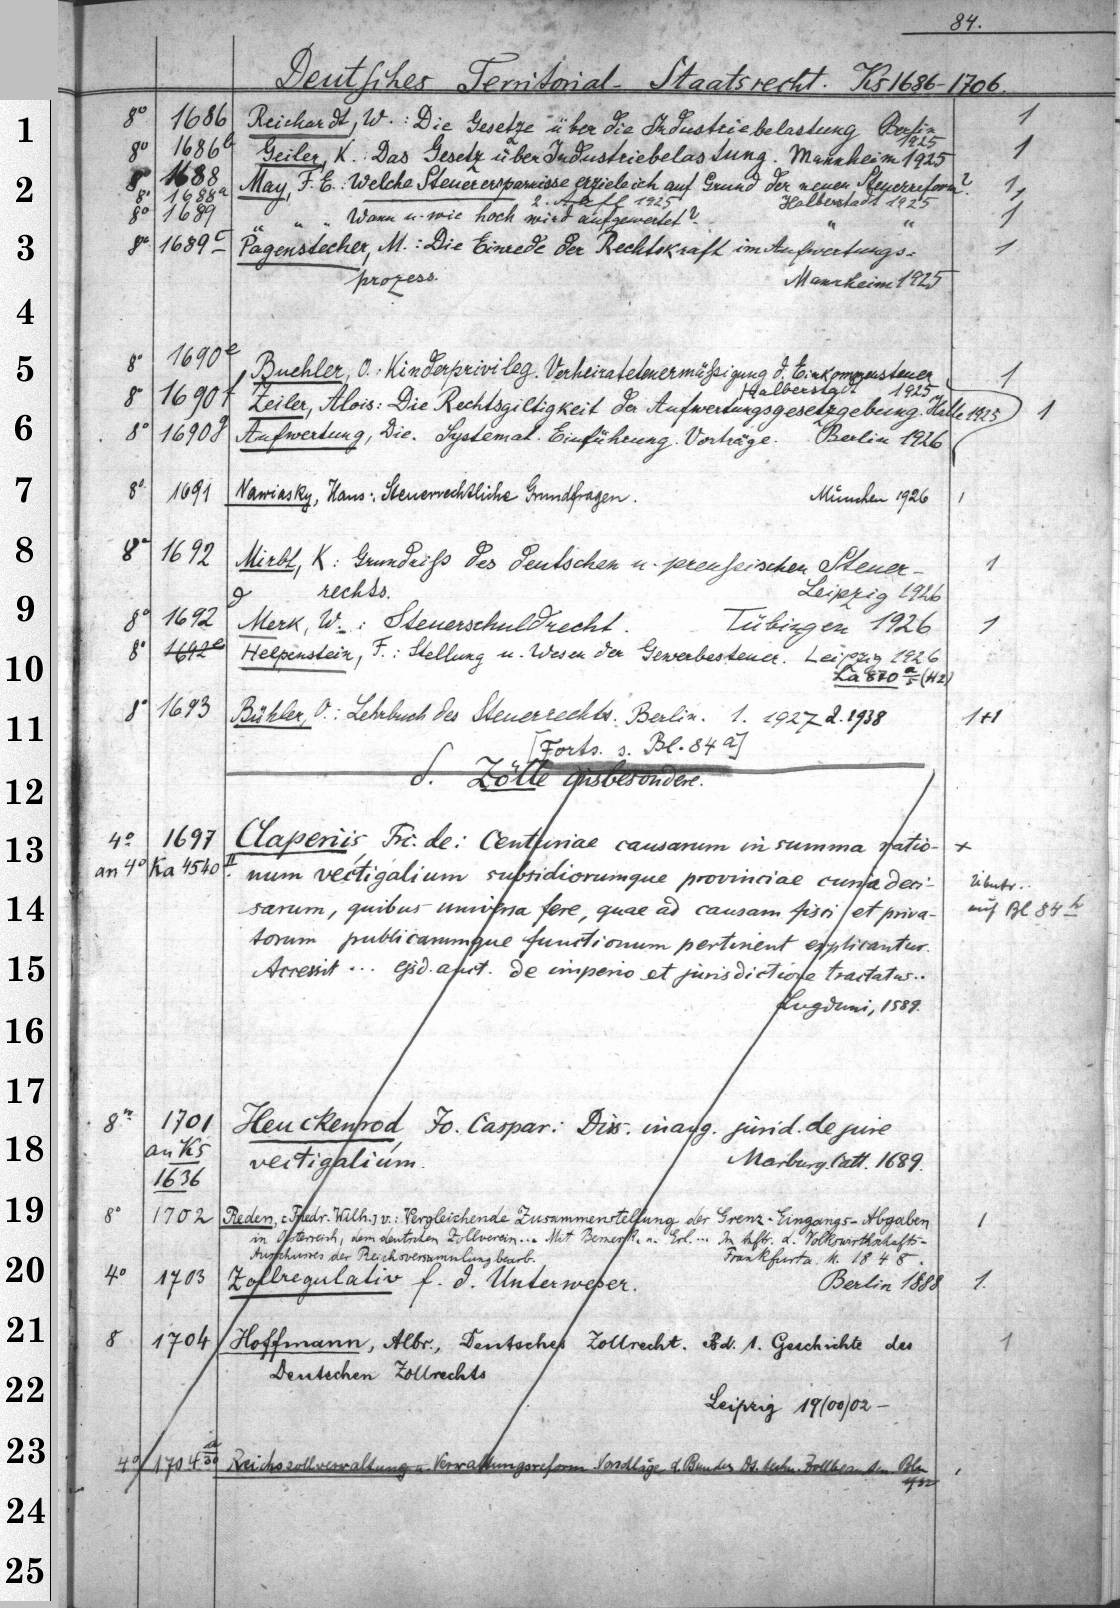 84.
Deutsches Territorial-Staatsrecht. Ks 1686-1706.
1
8° 1686 Reichardt, W.: Die Gesetze über die Industriebelastung Berlin 1
1925
8° 1686b Geiler, K.: Das Gesetz über Industriebelastung. Mannheim 1925 1
2
8° 1688 May, F. E.: Welche Steuerersparnisse erziele ich auf Grund der neuen Steuerreform? 1
8° 1688a 2. Aufl 1925 Halberstadt 1925
8° 1689 " " Wann u. wie hoch wird aufgewertet? " " 1
3
8° 1689c Pagenstecher, M.: Die Einrede der Rechtskraft im Aufwertungs- 1
prozess. Mannheim 1925
4
5
8° 1690e Buehler, O.: Kinderprivileg. Verheiratetenermäßigung d. Einkommensteuer 1
Halberstadt 1925
8° 1690f Zeiler, Alois: Die Rechtsgiltigkeit der Aufwertungsgesetzgebung. Halle 1925 1
6
8° 1690g Aufwertung, Die. Systemat. Einführung. Vorträge. Berlin 1926
7
8° 1691 Nawiasky, Hans: Steuerrechtliche Grundfragen. München 1926 1
8
8° 1692 Mirbt, K: Grundriß des deutschen u. preußischen Steuer- 1
rechts. Leipzig 1926
9
8° 1692 d Merk, W.: Steuerschuldrecht. Tübingen 1926 1
10
8° 1692e Helpenstein, F.: Stellung u. Wesen der Gewerbesteuer. Leipzig 1926
La 870 a/5 (42)
11
8° 1693 Bühler, O.: Lehrbuch des Steuerrechts. Berlin. 1. 1927 2. 1938 1+1
[Forts. s. Bl. 84a]
12
δ. Zölle insbesondere.
13
4° 1697 Claperiis Frc. de: Centuriae causarum in summa ratio- +
an 4° Ka 4540 II. num vectigalium subsidiorumque provinciae curia deci-
14
sarum, quibus universa fere, quae ad causam fisci et priva- auf Bl 84
torum publicarumque functionum pertinent explicantur.
15
Accessit ... ejsd. auct. de imperio et jurisdictione tractatus..
Lugduni, 1589.
16
17
18
8° 1701 Heuckenrod Jo. Caspar: Diss. inaug. jurid. de jure
an Ks vectigalium. Marburg. Catt. 1689.
1636
19
8° 1702 Reden, [Friedr. Wilh.] v.: Vergleichende Zusammenstellung der Grenz-Eingangs-Abgaben 1
in Österreich, dem deutschen Zollverein... Mit Bemerk. u. Erl... In d. Volkswirthschafts-
Ausschusses der Reichsversammlung bearb. Frankfurt a. M. 1848.
20
4° 1703 Zollregulativ f. d. Unterweser. Berlin 1888 1.
21
8 1704 Hoffmann, Albr., Deutsches Zollrecht. Bd. 1. Geschichte des 1
22
Deutschen Zollrechts
Leipzig 19(00)02-
23
4° 1704 a/50 Reichszollverwaltung u. Verwaltungsreform Vorschläge d. Bundes Dt. Zollbeamten. Bln
24
25